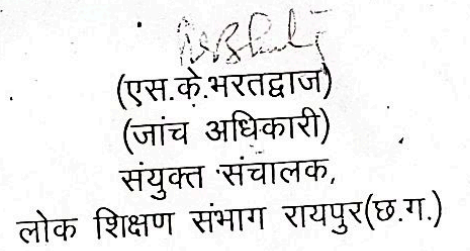 (एस.के.भरतद्वाज)
(जांच अधिकारी)
संयुक्त संचालक,
लोक शिक्षण संभाग रायपुर(छ.ग.)